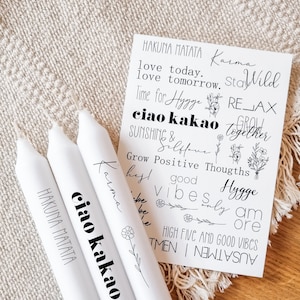 HAKUNA MATATA
Karma
love today.
love tomorrow.
Stay Wild
Time for Hygge
RELAX
ciao kakao
GROW
together
SUNSHINE &
Selflove
Grow Positive Thougths
good
vibes
only
Hygge
am
ore
HIGH FIVE AND GOOD VIBES
ATMEN | AUSATMEN
HAKUNA MATATA
ciao kakao
Karma